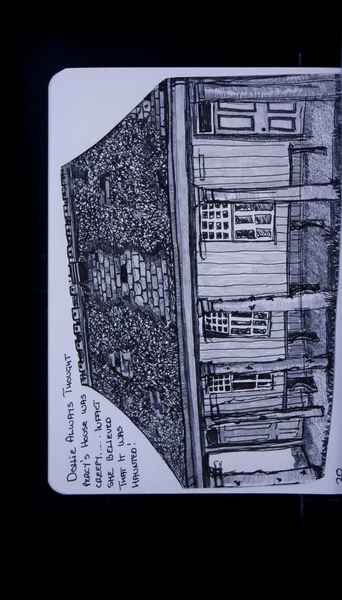 Dollie Always Thought
Percy's House was
creepy..... Infact
she believed
that it was
haunted!